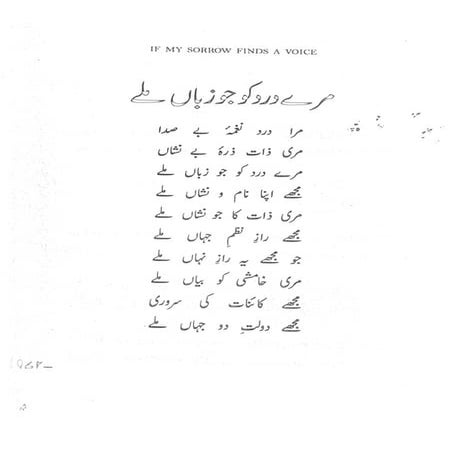 IF MY SORROW FINDS A VOICE
مرے درد کو جو زباں ملے
مرا درد نغمۂ بے صدا
مری ذات ذرۂ بے نشاں
مرے درد کو جو زباں ملے
مجھے اپنا نام و نشاں ملے
مری ذات کا جو نشاں ملے
مجھے رازِ نظمِ جہاں ملے
جو مجھے یہ رازِ نہاں ملے
مری خامشی کو بیاں ملے
مجھے کائنات کی سروری
مجھے دولتِ دو جہاں ملے